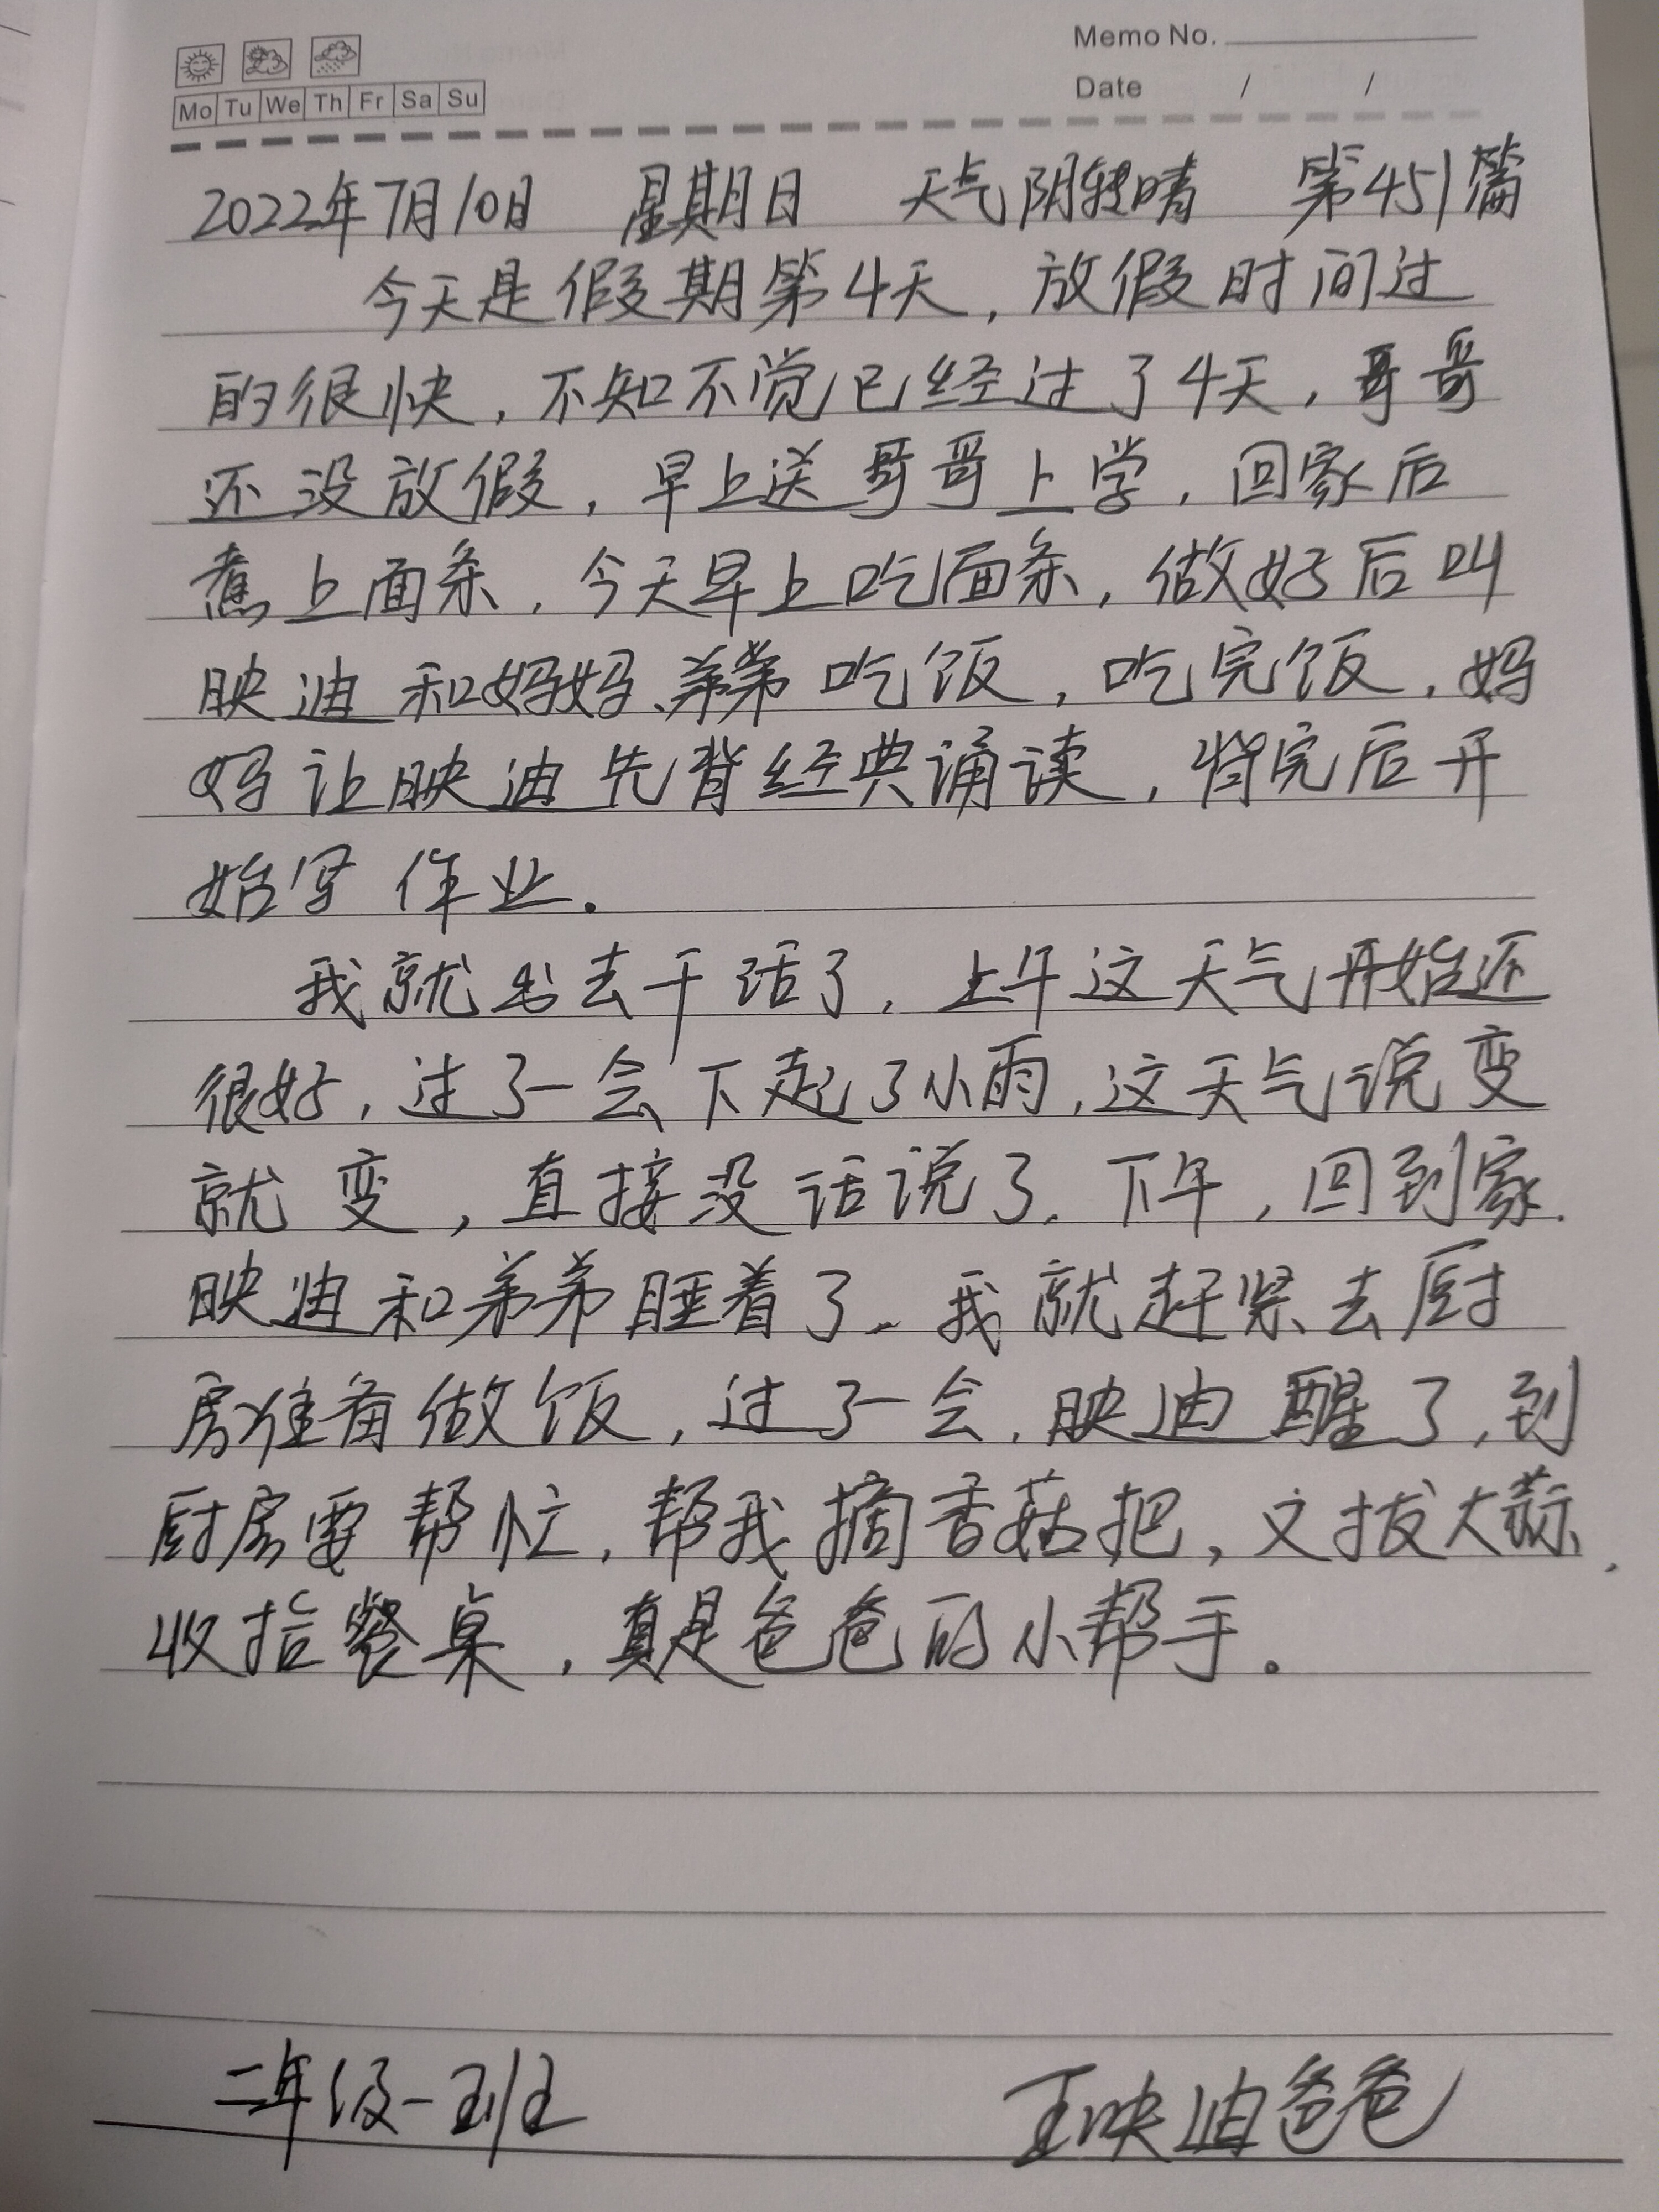 Memo No.
Mo Tu We Th Fr Sa Su
Date / /
2022年7月10日 星期日 天气阴转晴 第451篇
今天是假期第4天,放假时间过
的很快,不知不觉已经过了4天,哥哥
还没放假,早上送哥哥上学,回家后
煮上面条,今天早上吃面条,做好后叫
映迪和妈妈、弟弟吃饭,吃完饭,妈
妈让映迪先背经典诵读,背完后开
始写作业.
我就出去干活了,上午这天气开始还
很好,过了一会下起了小雨,这天气说变
就变,直接没话说了.下午,回到家.
映迪和弟弟睡着了.我就赶紧去厨
房准备做饭,过了一会,映迪醒了,到
厨房要帮忙,帮我摘香菇把,又拔大蒜.
收拾餐桌,真是爸爸的小帮手。
二年级一班 王映迪爸爸